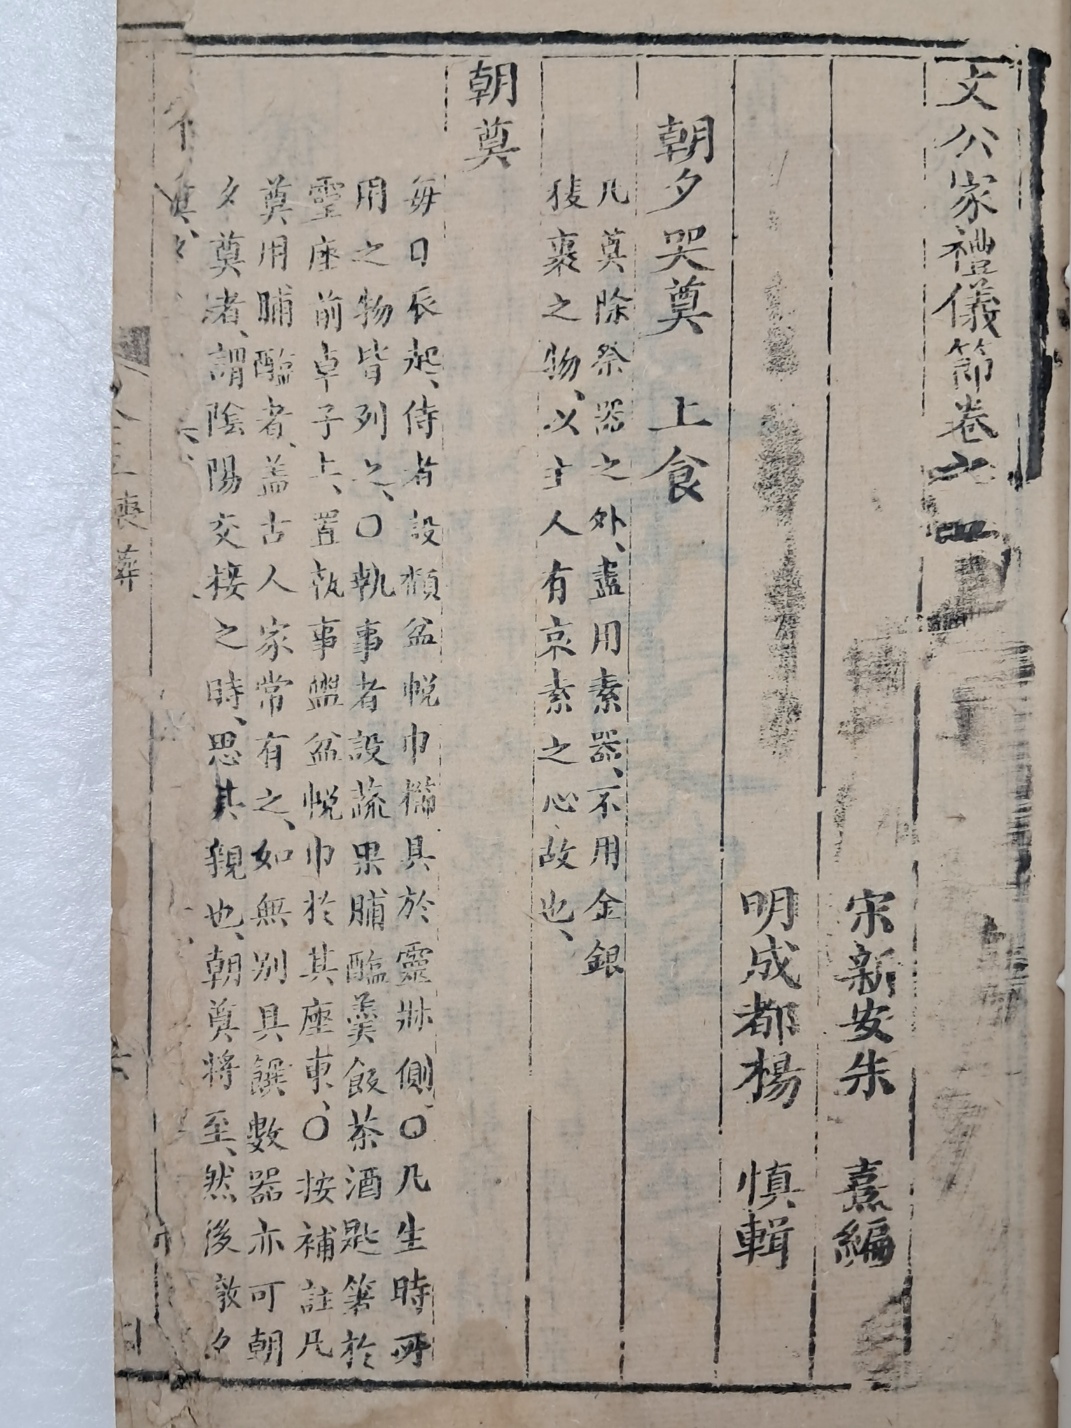 文公家禮儀節卷六
宋新安朱　熹編
明成都楊　慎輯
朝夕哭奠　上食
凡奠除祭器之外、盡用素器、不用金銀
稜裹之物、以主人有哀素之心故也、
朝奠
每日晨起、侍者設頮盆帨巾櫛具於靈牀側〇凡生時所
用之物皆列之、〇執事者設蔬果脯醢羹飯茶酒匙箸於
靈座前卓子上、置執事盥盆帨巾於其座東、〇按補註凡
奠用脯醢者、盖古人家常有之、如無別具饌數器亦可朝
夕奠者、謂陰陽交接之時、思其親也、朝奠將至、然後徹夕
奠、
喪葬